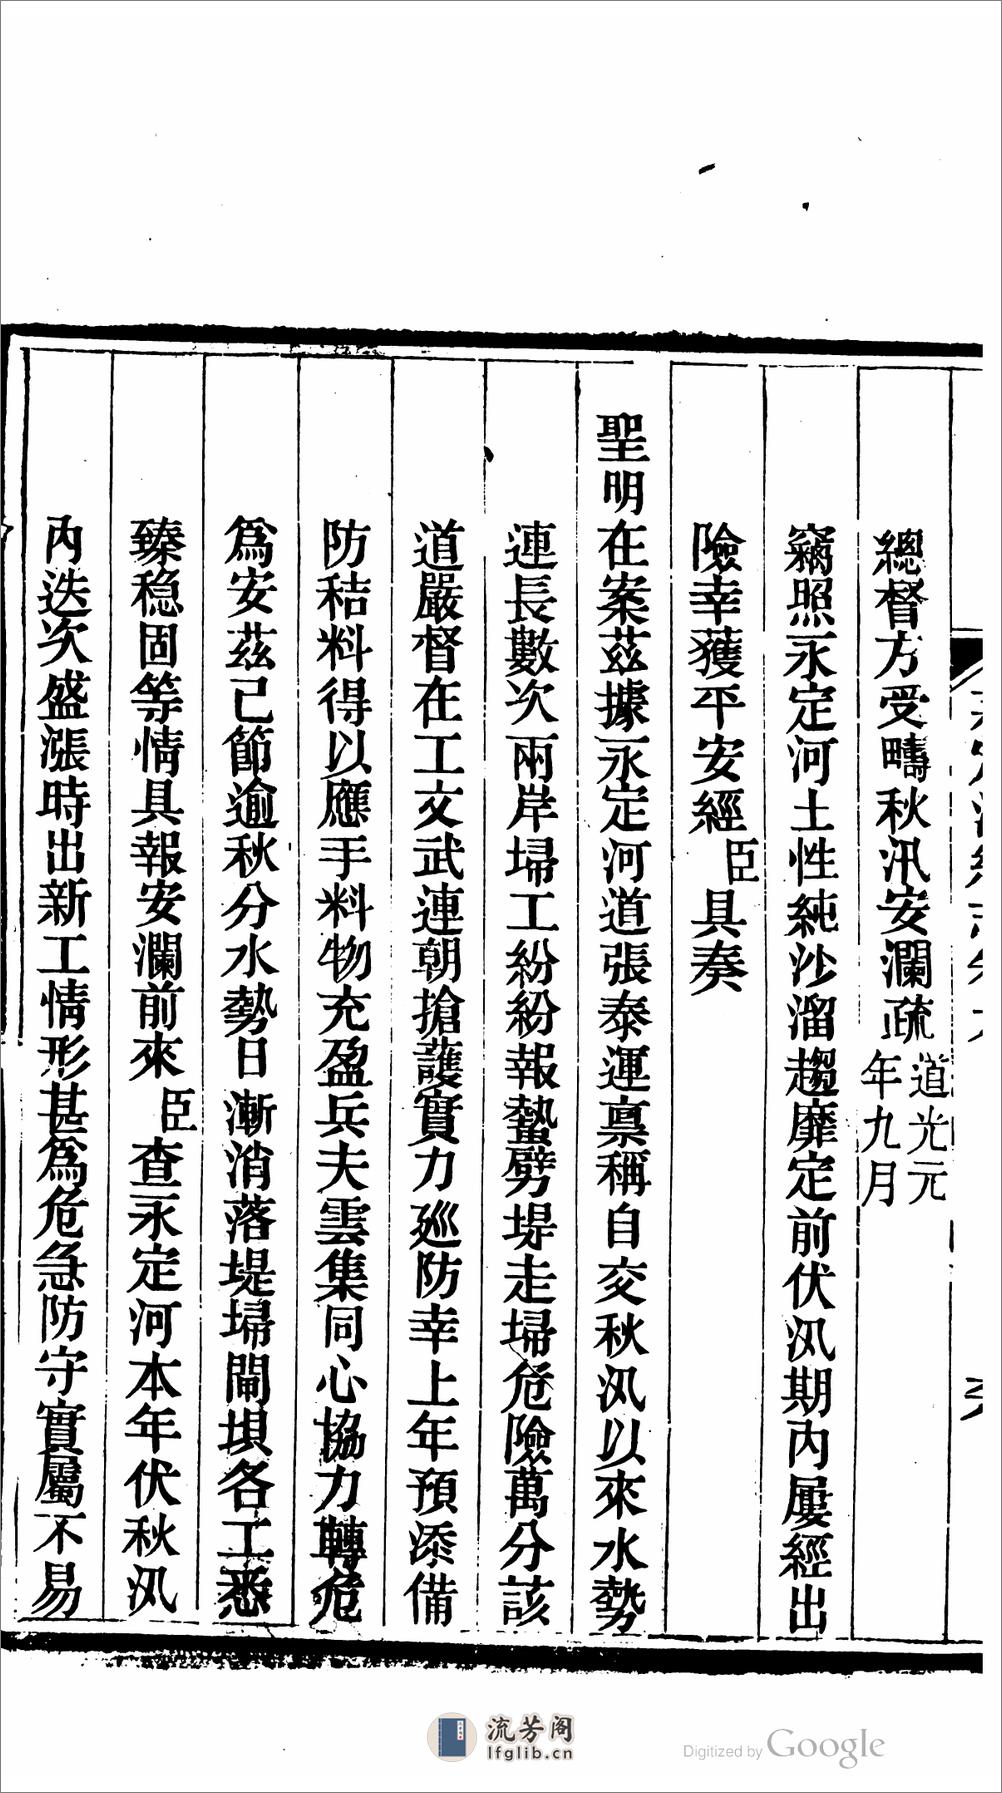 總督方受疇秋汛安瀾疏道光元
年九月
竊照永定河土性純沙溜趨靡定前伏汛期內屢經出
險幸獲平安經臣具奏
聖明在案茲據永定河道張泰運稟稱自交秋汛以來水勢
連長數次兩岸埽工紛紛報蟄劈堤走埽危險萬分該
道嚴督在工文武連朝搶護實力廵防幸上年預添備
防秸料得以應手料物充盈兵夫雲集同心協力轉危
爲安茲已節逾秋分水勢日漸消落堤埽閘壩各工悉
臻穏固等情具報安瀾前來臣查永定河本年伏秋汛
內迭次盛漲時出新工情形甚爲危急防守實屬不易
流芳阁
lfglib.cn
Digitized by Google